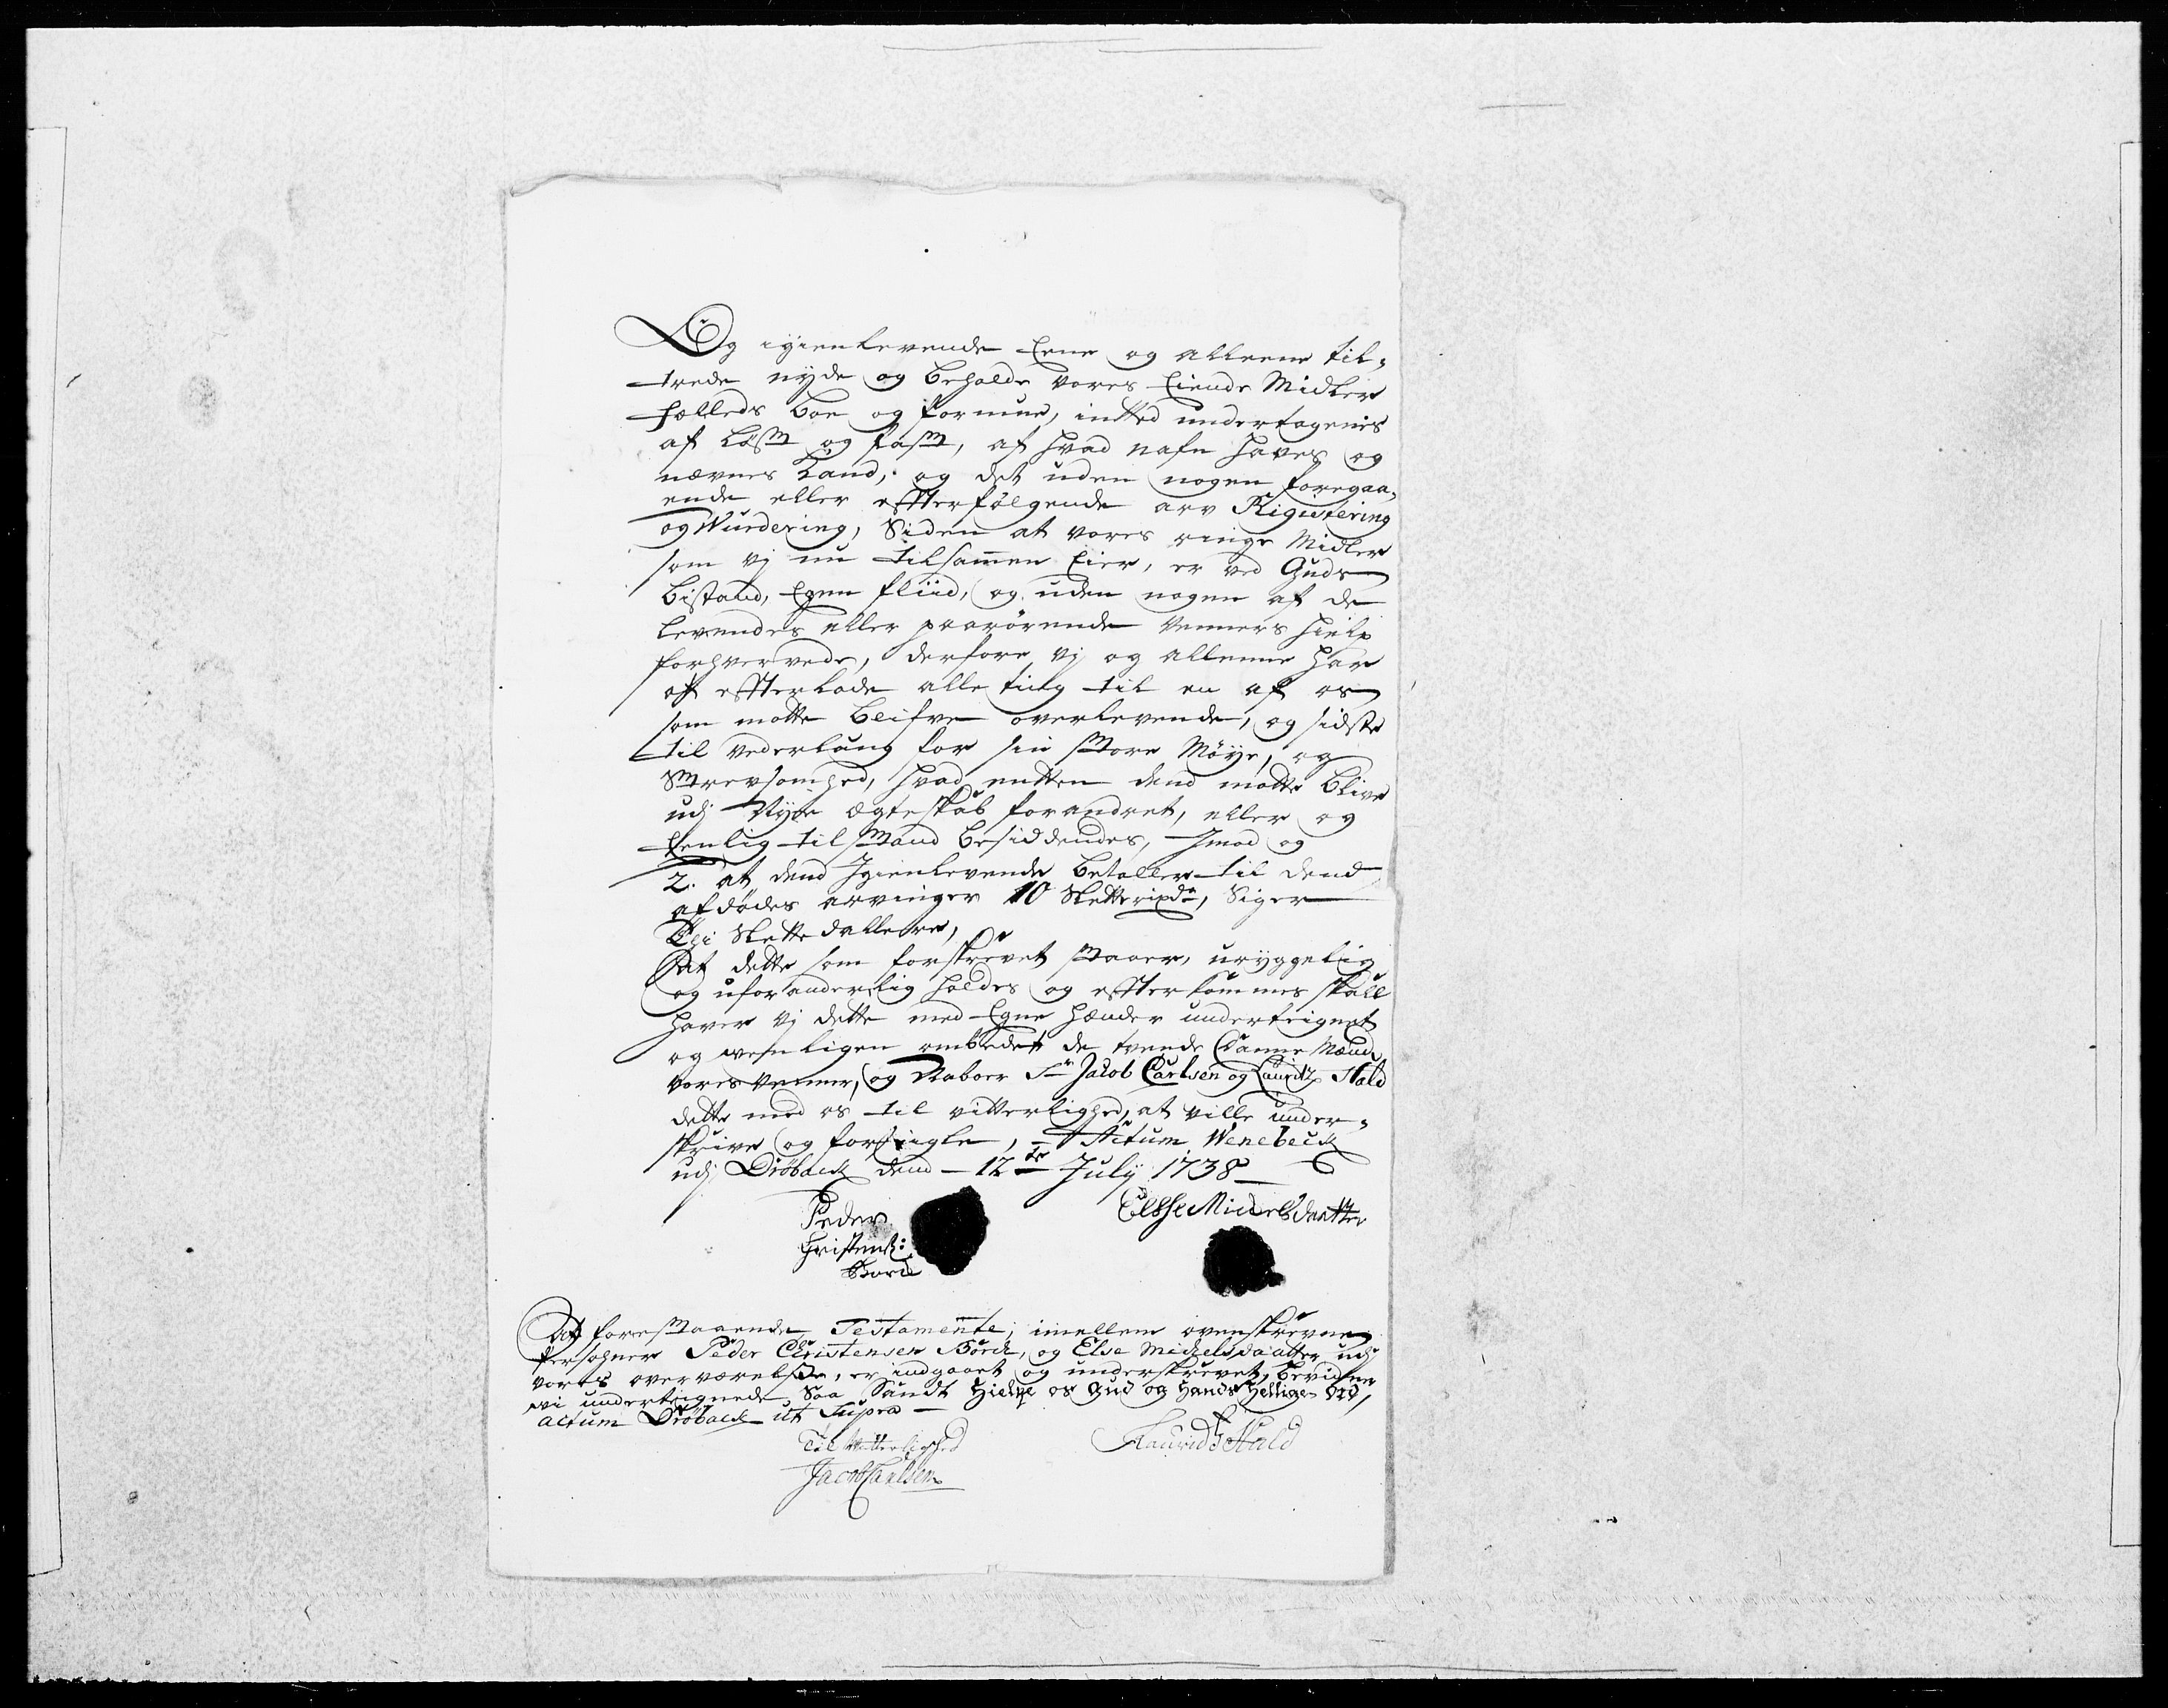 Og igienlevende Eene og alleene til-
trede nyde og beholde vores Eiende Midler
fælleds boe og formue, intted undertagenis
af løst og fast, af hvad nafn haves og
nævnes kand, og det uden nogen foregaa-
ende eller eftterfølgende arv Rigistering
og Wurdering, Siden at vores ringe Midler
som vj nu tilsammen Eier, er ved Guds
bistand, Egen fliid, og uden nogen af de
levendes eller paarørende venners hielp
forhvervede, derfore vj og alleene har
at eftterlade alle ting til en af os
som motte blifve overlevende, og sidste
til vederlaug for sin store Møye, og
Strevsomhed, hvad entten dend motte blive
udj Nÿe ægteskab forandret, eller og
Eenlig tilstand besiddendes, Jmod og
2. at dend Jgienlevende betaller til dend
afdødes arvinger 10 Slette rixdr, Siger
Thi Slette dallere,
At dette som forskrevet staaer, uryggelig
og uforanderlig holdes og eftterkommes skall
haver vj dette med Egne hænder underteignet
og venligen ombedet de tvende Danne Mænd
vores venner, og Naboer Sr Jacob Carlsen og Lauridtz Hald
dette med os til vitterlighed, at ville under-
skrive og forsiegle, Actum Wenebeck
udj Drøback dend 12te July 1738
Peder Elsse Michelsdaatter
Christens:
Borch
At forestaaende Testamente, imellem ovenskrevne
Persohner Peder Christensen Borch, og Else Michelsdaatter udj
vores overværelse, er indgaaet og underskrevet, bevidner
vi undertegnede Saa Sandt Hielpe os Gud og Hans Hellige Ord,
actum Drøback ut Supra
Til Vitterlighed Lauridtz Hald
Jacob Carlsen